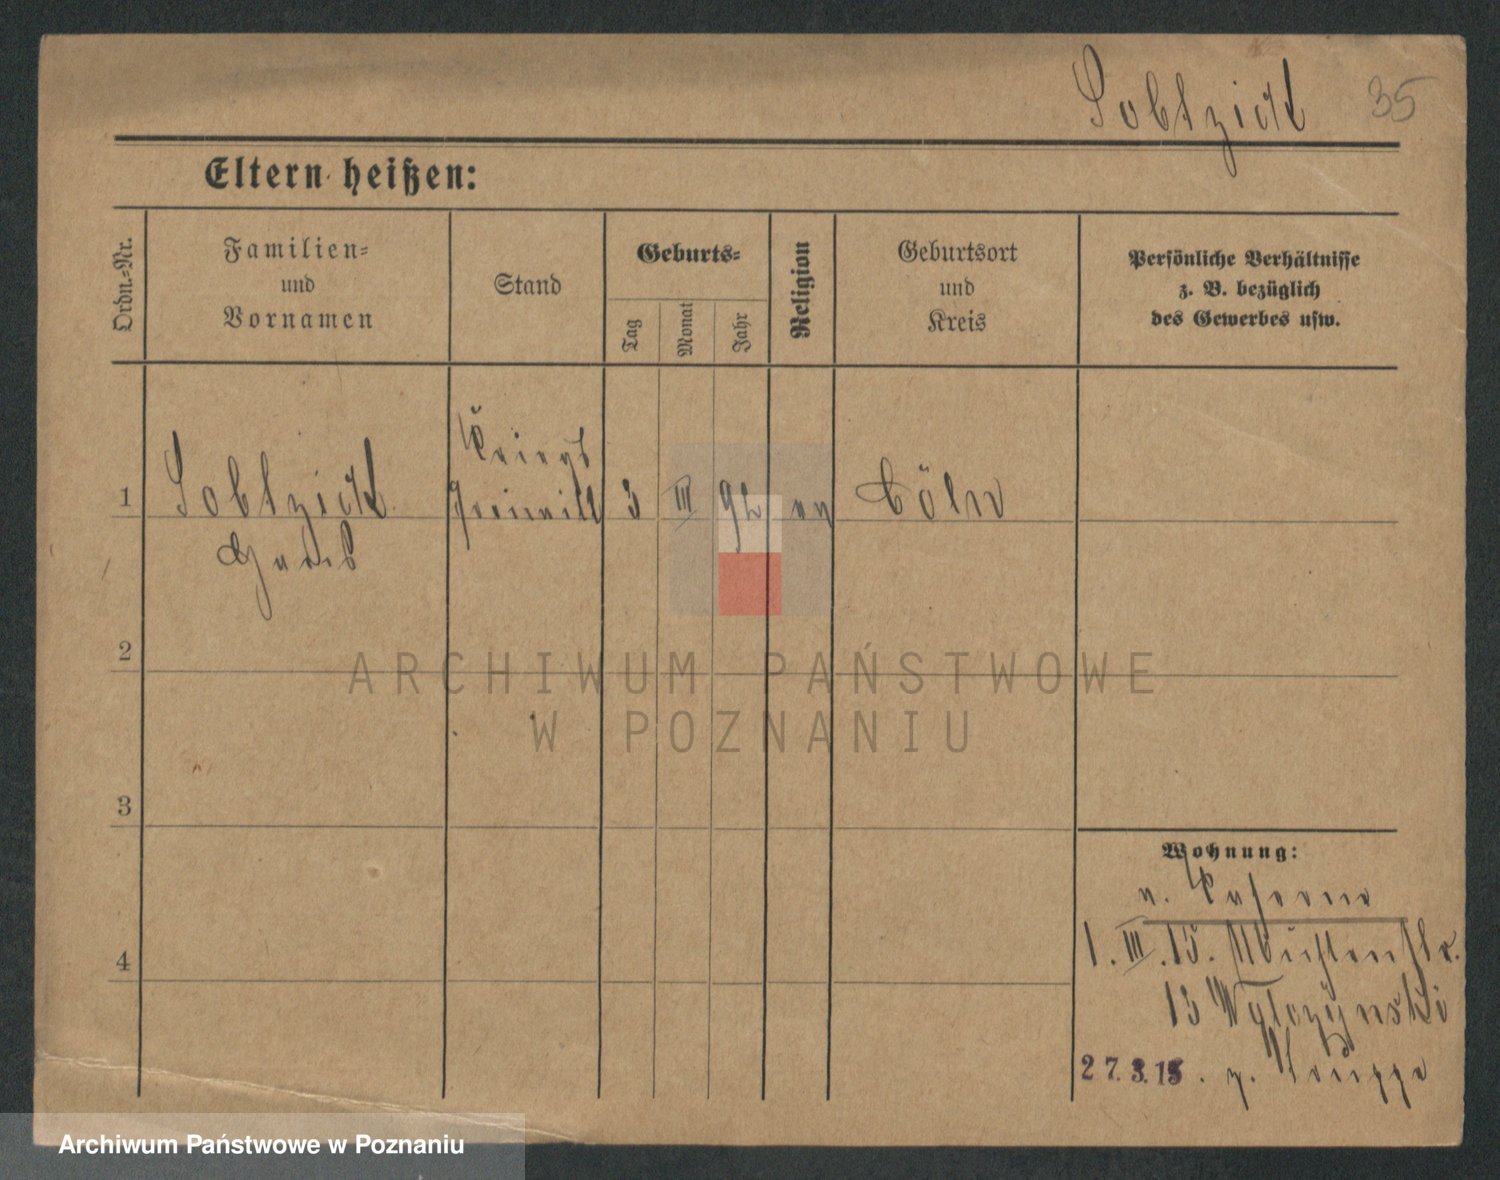 Sobtzick 35
Eltern heißen:
Ordn.=Nr.
Familien=
und
Vornamen
Stand
Geburts=
Tag
Monat
Jahr
Religion
Geburtsort
und
Kreis
Persönliche Verhältnisse
z. B. bezüglich
des Gewerbes usw.
Kriegs
1 Sobtzick freiwill 3 III 92 ev Cöln
2
3
4
Wohnung:
n. Kaserne
1. III. 15.
13
27.3.15. z. Truppe
ARCHIWUM PAŃSTWOWE
W POZNANIU
Archiwum Państwowe w Poznaniu